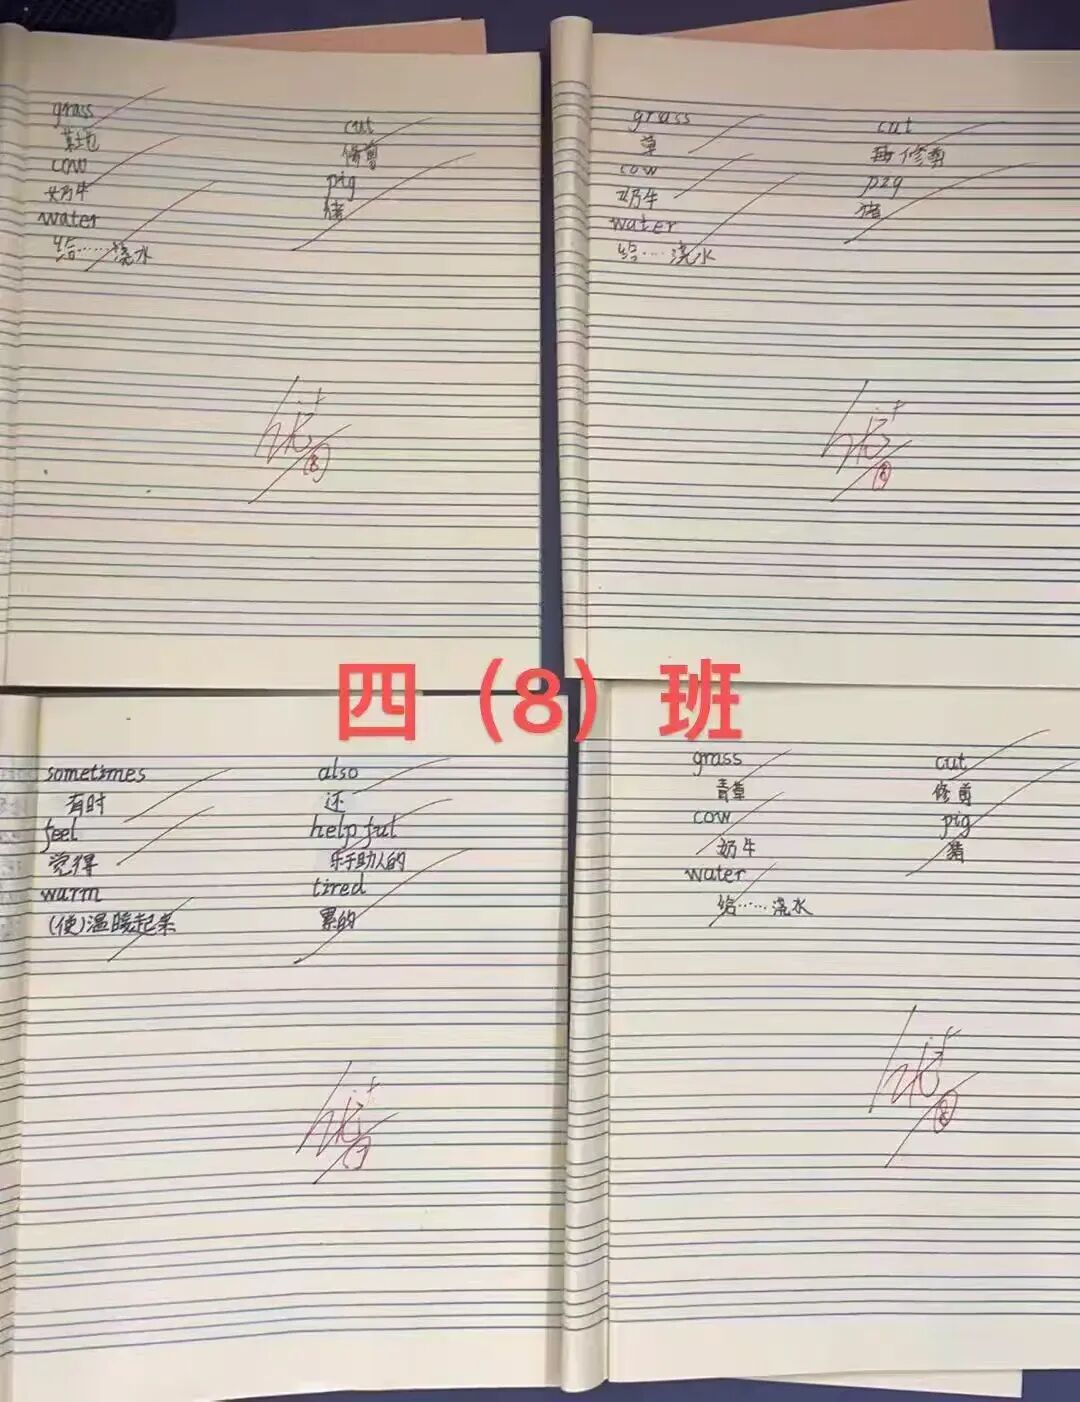 grass cut
草地 修剪
cow pig
奶牛 猪
water
给……浇水
优+
grass cut
草 修剪
cow pig
奶牛 猪
water
给……浇水
优+
8
四（8）班
sometimes also
有时 还
feel helpful
觉得 乐于助人的
warm tired
(使)温暖起来 累的
优+
grass cut
青草 修剪
cow pig
奶牛 猪
water
给……浇水
优+